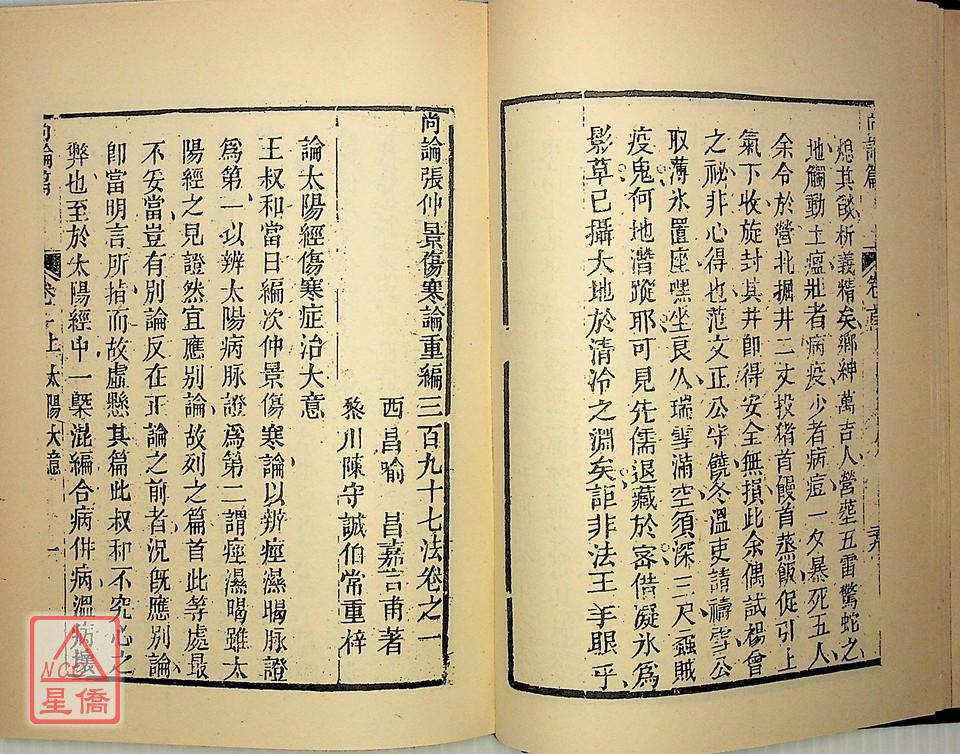 尚論篇 卷首
熄其燄析義精矣鄉紳萬吉人營塟五雷驚蛇之
地觸動土瘟壯者病疫少者病痘一夕暴死五人
余令於營北掘井二丈投猪首饅首蒸飯促引上
氣下收旋封其井即得安全無損此余偶試楊曾
之秘非心得也范文正公守饒冬溫吏請禱雪公
取薄氷置座嘿坐良久瑞雪滿空須深三尺蟲賊
疫鬼何地潛蹤耶可見先儒退藏於密借凝氷爲
影草已攝大地於清泠之淵矣詎非法王手眼乎
尚論張仲景傷寒論重編三百九十七法卷之一
西昌喻 昌嘉言甫著
黎川陳守誠伯常重梓
論太陽經傷寒症治大意
王叔和當日編次仲景傷寒論以辨痙濕暍脉證
爲第一以辨太陽病脉證爲第二謂痙濕暍雖太
陽經之見證然宜應別論故列之篇首此等處最
不妥當豈有別論反在正論之前者況旣應別論
卽當明言所指而故虛懸其篇此叔和不究心之
弊也至於太陽經中一槩混編合病併病溫病壞
尚論篇 卷一上 太陽大意 一
NCC
星僑